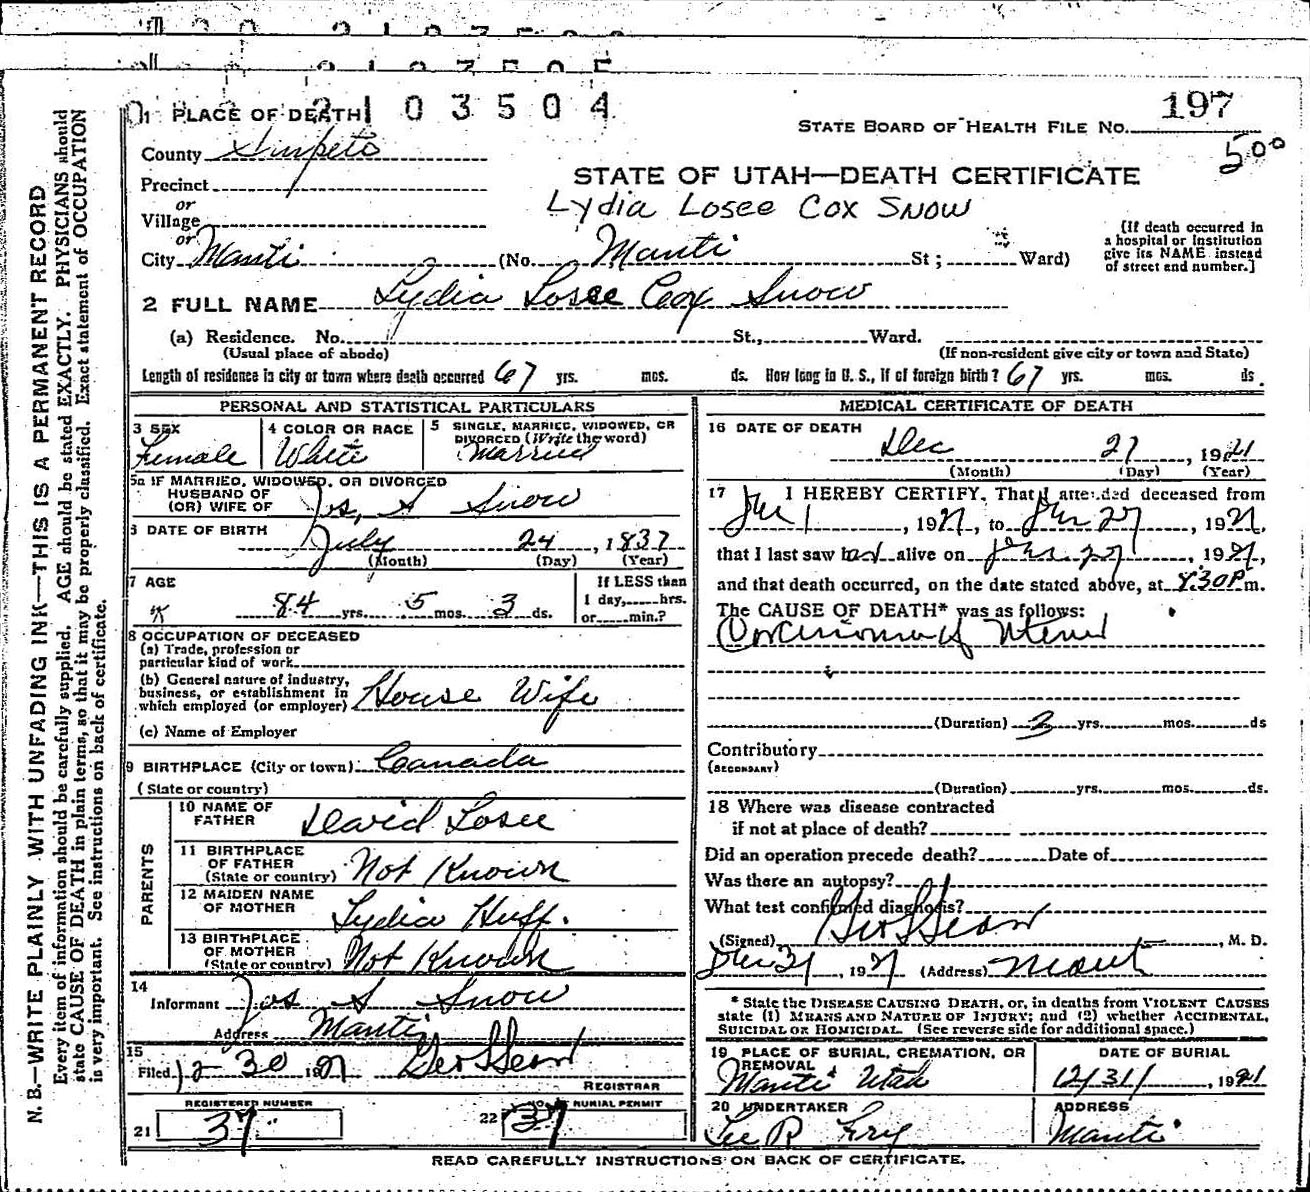 2103504
197
1 PLACE OF DEATH
STATE BOARD OF HEALTH FILE No.
500
County Sanpete
STATE OF UTAH—DEATH CERTIFICATE
Precinct
Lydia Losee Cox Snow
or
Village
or
City Manti (No. Manti St; Ward)
[If death occurred in
a hospital or institution
give its NAME instead
of street and number.]
2 FULL NAME Lydia Losee Cox Snow
(a) Residence. No. St., Ward.
(Usual place of abode) (If non-resident give city or town and State)
Length of residence in city or town where death occurred 67 yrs. mos. ds. How long in U. S., if of foreign birth? 67 yrs. mos. ds.
PERSONAL AND STATISTICAL PARTICULARS
3 SEX 4 COLOR OR RACE 5 SINGLE, MARRIED, WIDOWED, OR
DIVORCED (Write the word)
Female White Married
5a IF MARRIED, WIDOWED, OR DIVORCED
HUSBAND OF
(OR) WIFE OF Jos. S Snow
6 DATE OF BIRTH
July 24, 1837
(Month) (Day) (Year)
7 AGE If LESS than
84 yrs. 5 mos. 3 ds. 1 day, hrs.
or min.?
8 OCCUPATION OF DECEASED
(a) Trade, profession or
particular kind of work
(b) General nature of industry,
business, or establishment in
which employed (or employer) House Wife
(c) Name of Employer
9 BIRTHPLACE (City or town) Canada
(State or country)
PARENTS
10 NAME OF
FATHER David Losee
11 BIRTHPLACE
OF FATHER
(State or country) Not Known
12 MAIDEN NAME
OF MOTHER Lydia Huff.
13 BIRTHPLACE
OF MOTHER
(State or country) Not Known
14
Informant Jos S Snow
Address Manti
15
Filed 12-30 1921
REGISTRAR
REGISTERED NUMBER
21 37
NO. BURIAL PERMIT
22 37
MEDICAL CERTIFICATE OF DEATH
16 DATE OF DEATH
Dec 27, 1921
(Month) (Day) (Year)
17 I HEREBY CERTIFY, That I attended deceased from
1, 1921, to 27, 1921,
that I last saw alive on 27, 1921,
and that death occurred, on the date stated above, at 8.30 P m.
The CAUSE OF DEATH* was as follows:
Carcinoma of Uterus
(Duration) yrs. mos. ds
Contributory
(SECONDARY)
(Duration) yrs. mos. ds.
18 Where was disease contracted
if not at place of death?
Did an operation precede death? Date of
Was there an autopsy?
What test confirmed diagnosis?
(Signed), M. D.
Dec 31, 1921 (Address) Manti
* State the DISEASE CAUSING DEATH, or, in deaths from VIOLENT CAUSES
state (1) MEANS AND NATURE OF INJURY; and (2) whether ACCIDENTAL,
SUICIDAL OR HOMICIDAL. (See reverse side for additional space.)
19 PLACE OF BURIAL, CREMATION, OR
REMOVAL
DATE OF BURIAL
Manti Utah 12/31/, 1921
20 UNDERTAKER ADDRESS
Lee R Fry Manti
READ CAREFULLY INSTRUCTIONS ON BACK OF CERTIFICATE.
N. B.—WRITE PLAINLY WITH UNFADING INK—THIS IS A PERMANENT RECORD
Every item of information should be carefully supplied. AGE should be stated EXACTLY. PHYSICIANS should
state CAUSE OF DEATH in plain terms, so that it may be properly classified. Exact statement of OCCUPATION
is very important. See instructions on back of certificate.